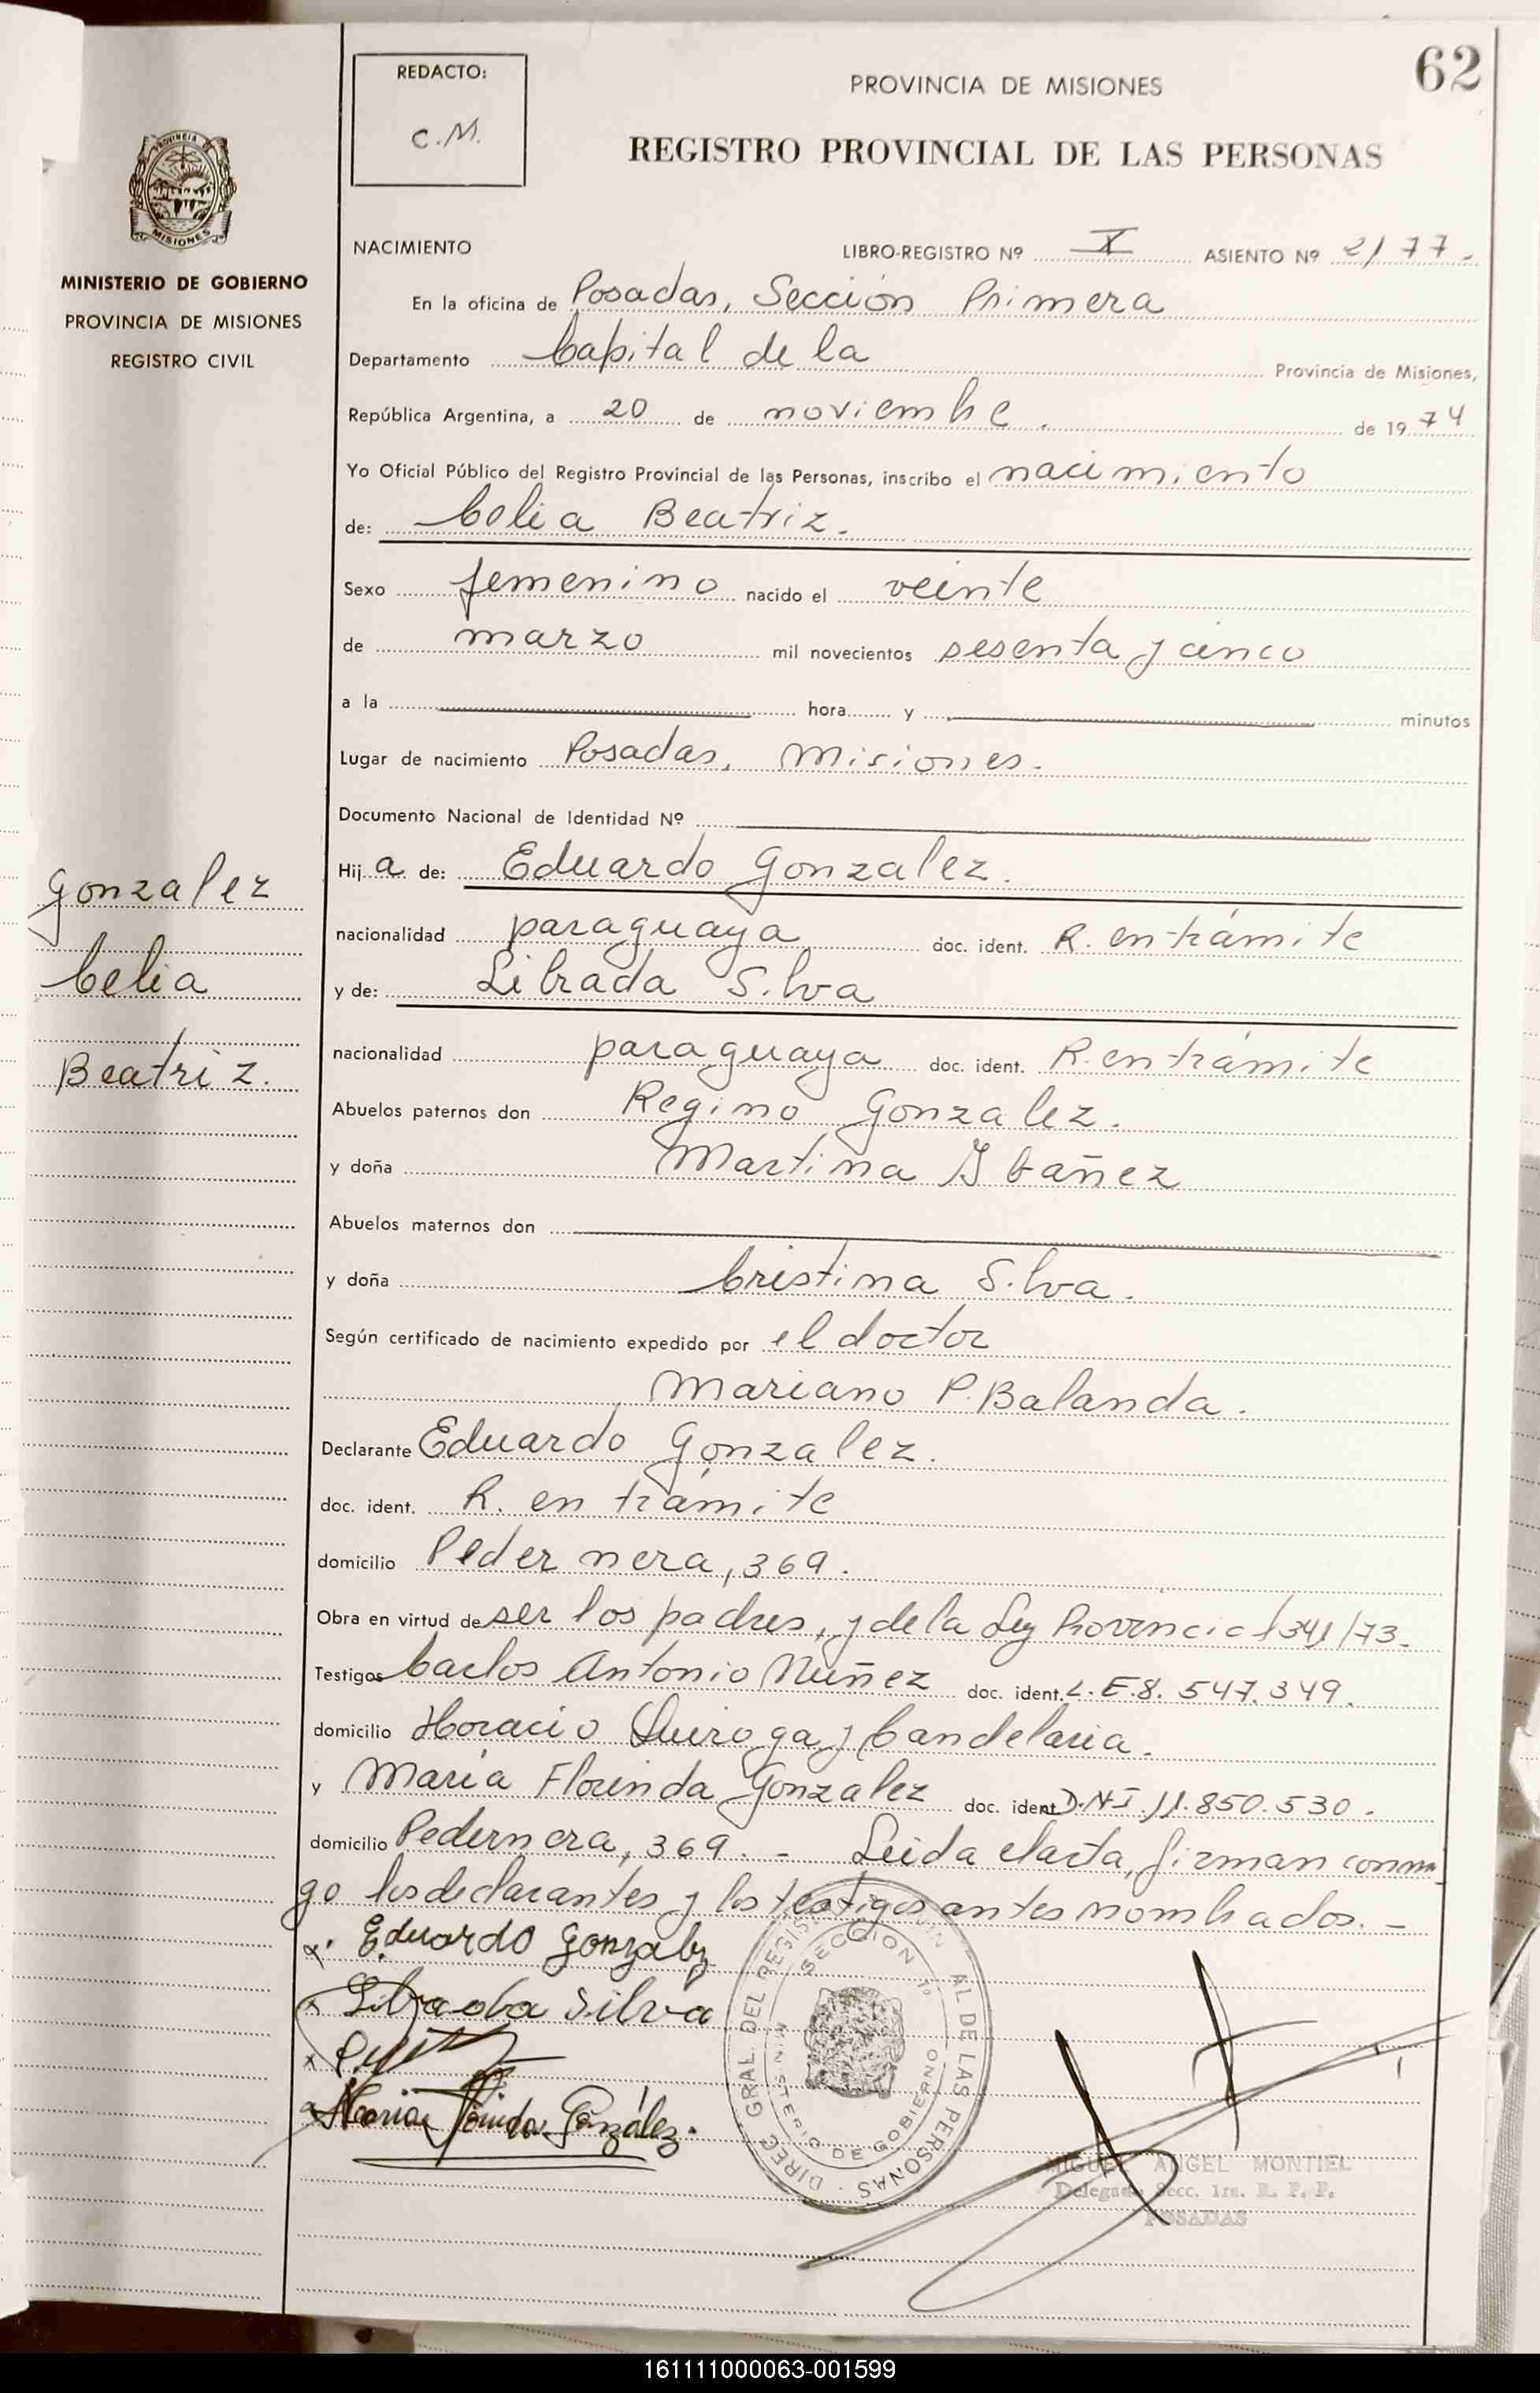 62
REDACTO:
C.M.
PROVINCIA DE MISIONES
REGISTRO PROVINCIAL DE LAS PERSONAS
MISIONES
MINISTERIO DE GOBIERNO
PROVINCIA DE MISIONES
REGISTRO CIVIL
NACIMIENTO LIBRO-REGISTRO Nº X ASIENTO Nº 2177.
En la oficina de Posadas, Sección Primera
Departamento Capital de la Provincia de Misiones,
República Argentina, a 20 de noviembre. de 1974
Yo Oficial Público del Registro Provincial de las Personas, inscribo el nacimiento
de: Celia Beatriz.
Sexo femenino nacido el veinte
de marzo mil novecientos sesenta y cinco
a la hora y minutos
Lugar de nacimiento Posadas, Misiones.
Documento Nacional de Identidad Nº
Hija de: Eduardo Gonzalez.
nacionalidad paraguaya doc. ident. R. en trámite
y de: Librada Silva
nacionalidad paraguaya doc. ident. R. en trámite
Abuelos paternos don Regino Gonzalez.
y doña Martina Ibañez
Abuelos maternos don
y doña Cristina Silva.
Según certificado de nacimiento expedido por el doctor
Mariano P. Balanda.
Declarante Eduardo Gonzalez.
doc. ident. R. en trámite
domicilio Pedernera, 369.
Obra en virtud de ser los padres, y de la Ley Provincial 341/73.
Testigos Carlos Antonio Núñez doc. ident. L.E.8.547.349.
domicilio Horacio Quiroga y Candelaria.
y María Florinda Gonzalez doc. ident D.N.I 11.850.530.
domicilio Pedernera, 369. - Leida el acta, firman conmi
go los declarantes y los testigos antes nombrados. -
x. Eduardo Gonzalez
x Librada Silva
x
x Maria Florinda González.
Gonzalez
Celia
Beatriz.
DIREC. GRAL. DEL REGIS AL DE LAS PERSONAS
SECCION 1ª
MINISTERIO DE GOBIERNO
MIGUEL ANGEL MONTIEL
Delegado Secc. 1ra. R. P. P.
POSADAS
161111000063-001599